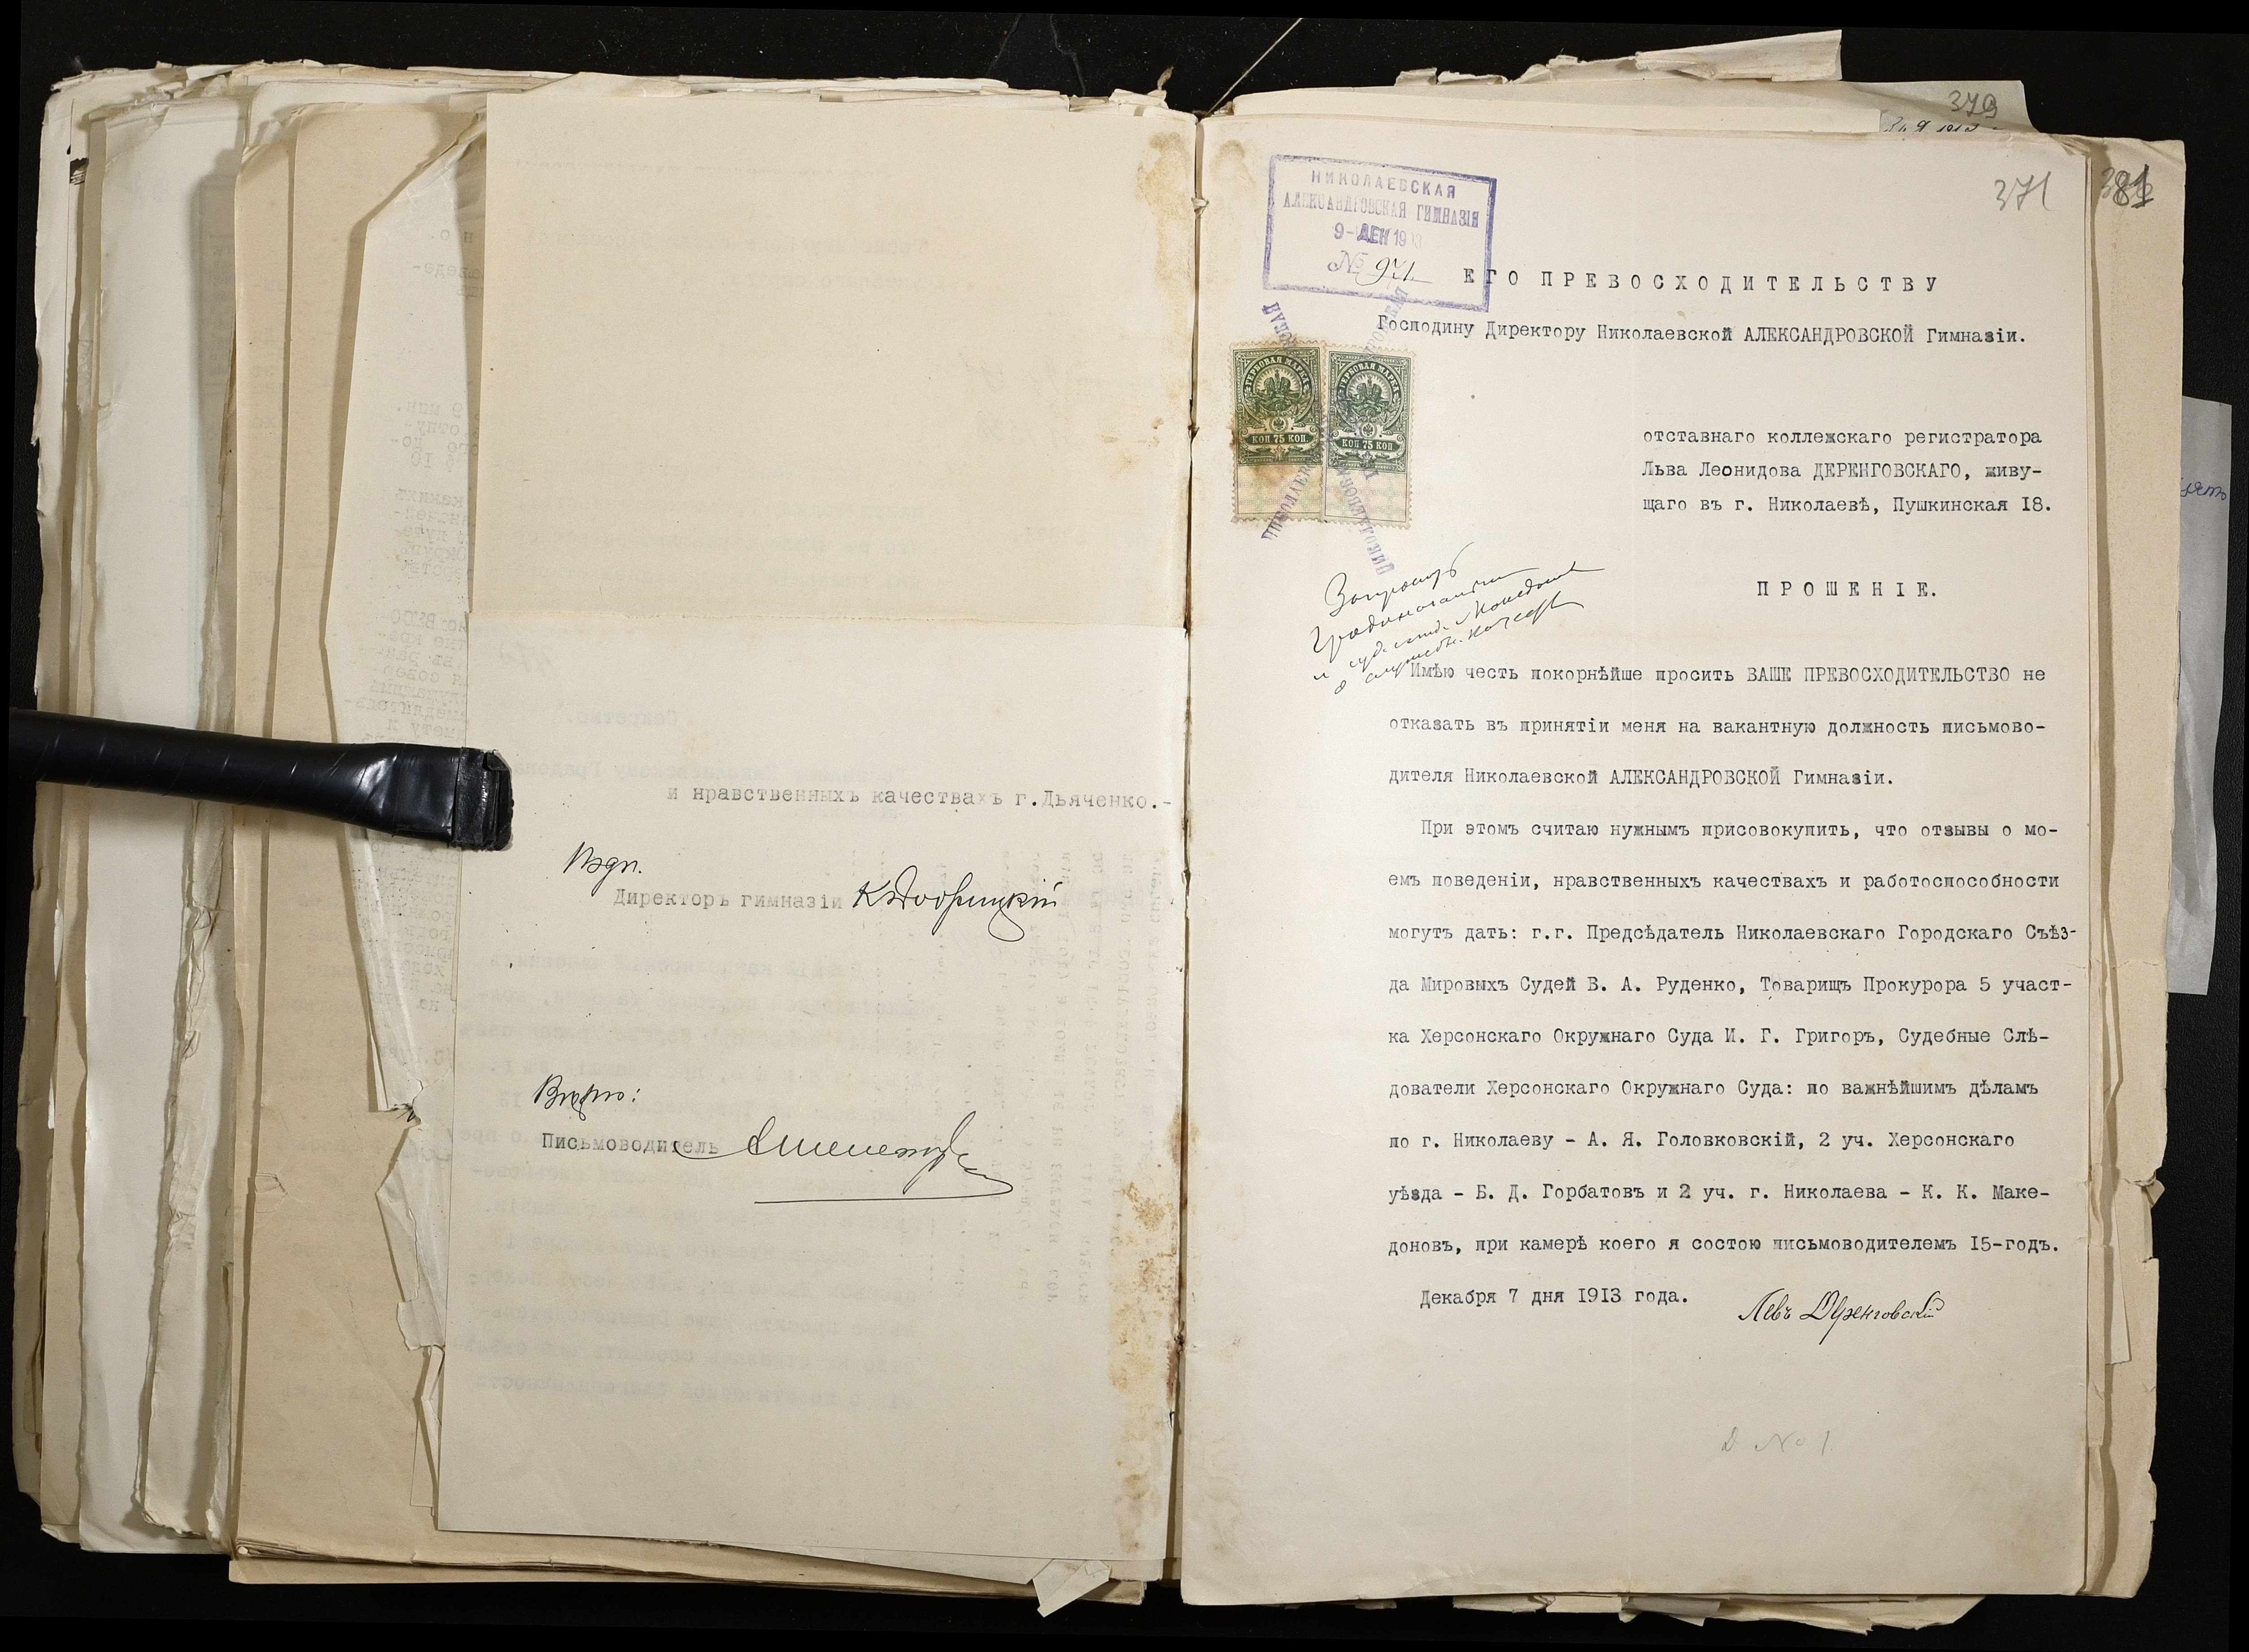 и нравственныхъ качествахъ г.Дьяченко.-
Директоръ гимназіи
Письмоводитель
379
371
НИКОЛАЕВСКАЯ
АЛЕКСАНДРОВСКАЯ ГИМНАЗІЯ
9-ДЕК 1913
№ 971
ЕГО ПРЕВОСХОДИТЕЛЬСТВУ
Господину Директору Николаевской АЛЕКСАНДРОВСКОЙ Гимназіи.
ГЕРБОВАЯ МАРКА
КОП 75 КОП
ГЕРБОВАЯ МАРКА
КОП 75 КОП
отставнаго коллежскаго регистратора
Льва Леонидова ДЕРЕНГОВСКАГО, живу-
щаго въ г. Николаевѣ, Пушкинская 18.
ПРОШЕНІЕ.
Имѣю честь покорнѣйше просить ВАШЕ ПРЕВОСХОДИТЕЛЬСТВО не
отказать въ принятіи меня на вакантную должность письмово-
дителя Николаевской АЛЕКСАНДРОВСКОЙ Гимназіи.
При этомъ считаю нужнымъ присовокупить, что отзывы о мо-
емъ поведеніи, нравственныхъ качествахъ и работоспособности
могутъ дать: г.г. Предсѣдатель Николаевскаго Городскаго Съѣз-
да Мировыхъ Судей В. А. Руденко, Товарищъ Прокурора 5 участ-
ка Херсонскаго Окружнаго Суда И. Г. Григоръ, Судебные Слѣ-
дователи Херсонскаго Окружнаго Суда: по важнѣйшимъ дѣламъ
по г. Николаеву - А. Я. Головковскій, 2 уч. Херсонскаго
уѣзда - Б. Д. Горбатовъ и 2 уч. г. Николаева - К. К. Маке-
доновъ, при камерѣ коего я состою письмоводителемъ 15-годъ.
Декабря 7 дня 1913 года.
Левъ Деренговскій
№ 1